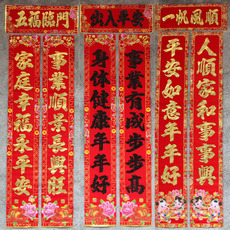 五福臨門
家庭幸福永平安
事業順景長興旺
出入平安
身体健康年年好
事業有成步步高
一帆風順
平安如意年年好
人順家和事事興